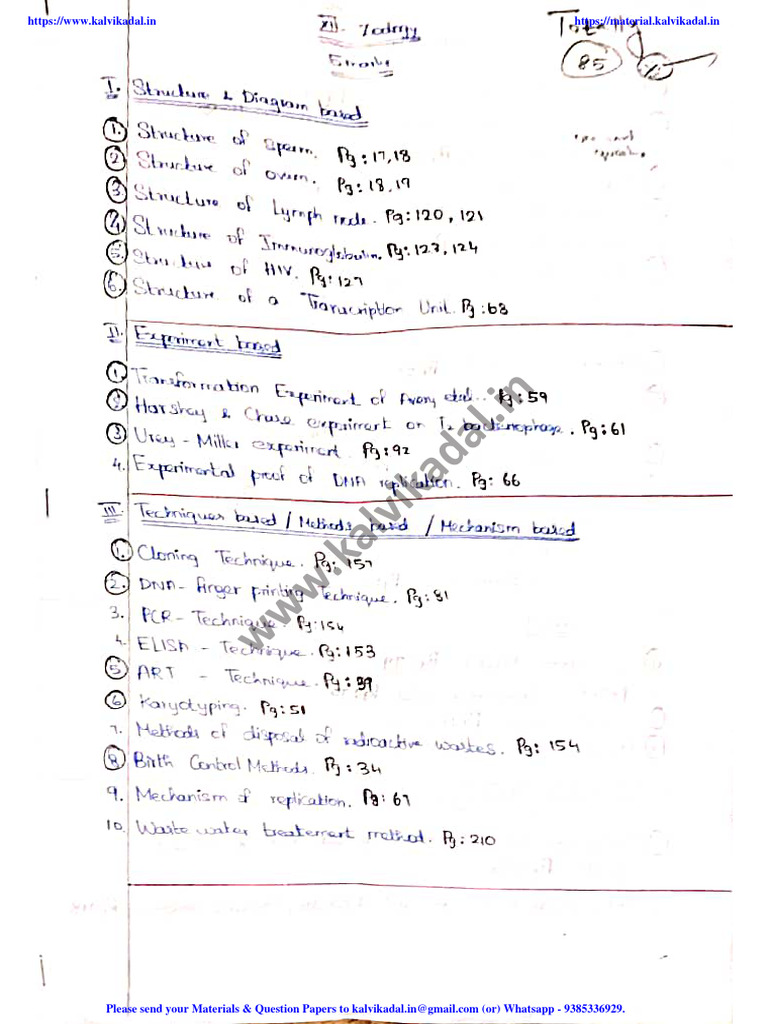 https://www.kalvikadal.in
https://material.kalvikadal.in
XII - Zoology
Totally
85
5 marks
I. Structure & Diagram based
1. Structure of sperm. Pg: 17,18
2. Structure of ovum. Pg: 18,19
3. Structure of Lymph node. Pg: 120, 121
4. Structure of Immunoglobulin. Pg: 123, 124
5. Structure of HIV. Pg: 127
6. Structure of a Transcription Unit. Pg: 68
II. Experiment based
1. Transformation Experiment of Avery etal.. Pg: 59
2. Harshey & Chase experiment on T2 bacteriophage. Pg: 61
3. Urey - Miller experiment. Pg: 92
4. Experimental proof of DNA replication. Pg: 66
III. Techniques based / Methods based / Mechanism based
1. Cloning Technique. Pg: 157
2. DNA - finger printing Technique. Pg: 81
3. PCR - Technique. Pg: 154
4. ELISA - Technique. Pg: 153
5. ART - Technique. Pg: 39
6. Karyotyping. Pg: 51
7. Methods of disposal of radioactive wastes. Pg: 154
8. Birth Control Methods. Pg: 34
9. Mechanism of replication. Pg: 67
10. Waste water treatement method. Pg: 210
www.kalvikadal.in
Please send your Materials & Question Papers to kalvikadal.in@gmail.com (or) Whatsapp - 9385336929.